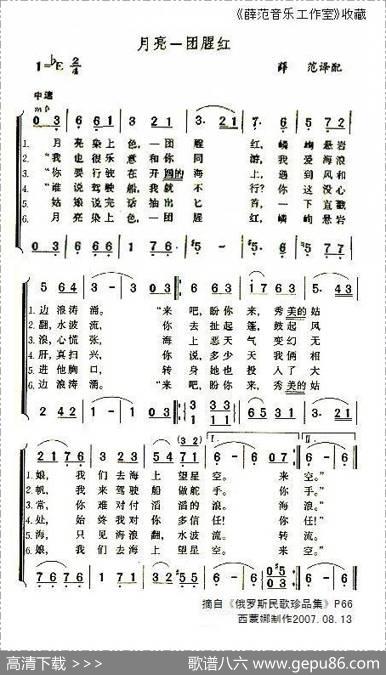 《薛范音乐工作室》收藏
月亮一团腥红
1=♭E 2/4
薛 范译配
中速
mp
0 3 6 6 1 7 6 3· 2 1 7· 6 5 7 7
1. 月亮染上色,一团腥红,嶙峋悬岩
2. “我也很乐意和你同游,我爱海浪
3. “你要行驶在开阔的海上,遇到风和
4. “谁说驾驶船,我就不行?你这没心
5. 姑娘说完话抽出匕首,一下直戳
6. 月亮染上色,一团腥红,嶙峋悬岩
5 6 4 3 - 3 0 3 6· 3 1 7 6 3 4 3
1. 边浪涛涌。“来吧,盼你来,秀美的姑
2. 翻,水波流,你去扯起篷,鼓起风
3. 浪,心慌张,海上恶天气变幻无
4. 肝,真扫兴,你说,多少天我俩相
5. 进他胸口,转身她也投入了大
6. 边浪涛涌。“来吧,盼你来,秀美的姑
2 4 2 1 - 1 0 3
6 5 3 1 3· 2 1
(3 2) I. II.
2 1 7 6 2 3 2 1 3 5 4 7 1 6 - 6 0 3 6 - 6 0
1. 娘,我们去海上望星空。来空。”
2. 帆,我来驾驶船做舵手。你手。”
3. 常,你难对付滔滔的浪。海浪。”
4. 处,始终我对你多信任!你任!”
5. 海,只见海浪翻,水波流。转流。
6. 娘,我们去海上望星空。来空。”
摘自《俄罗斯民歌珍品集》P66
西蒙娜制作2007.08.13
高清下载 >>> 歌谱八六 www.gepu86.com